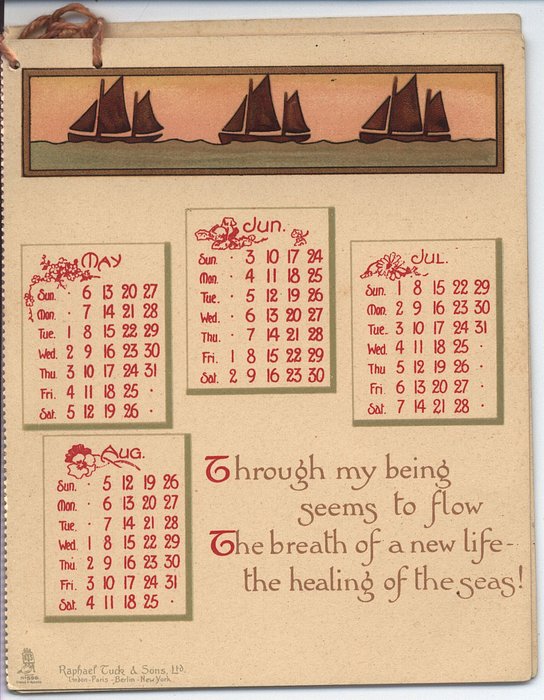 May
Sun. · 6 13 20 27
Mon. · 7 14 21 28
Tue. 1 8 15 22 29
Wed. 2 9 16 23 30
Thu. 3 10 17 24 31
Fri. 4 11 18 25 ·
Sat. 5 12 19 26 ·
Jun.
Sun. · 3 10 17 24
Mon. · 4 11 18 25
Tue. · 5 12 19 26
Wed. · 6 13 20 27
Thu. · 7 14 21 28
Fri. 1 8 15 22 29
Sat. 2 9 16 23 30
Jul.
Sun. 1 8 15 22 29
Mon. 2 9 16 23 30
Tue. 3 10 17 24 31
Wed. 4 11 18 25 ·
Thu. 5 12 19 26 ·
Fri. 6 13 20 27 ·
Sat. 7 14 21 28 ·
Aug.
Sun. · 5 12 19 26
Mon. · 6 13 20 27
Tue. · 7 14 21 28
Wed. 1 8 15 22 29
Thu. 2 9 16 23 30
Fri. 3 10 17 24 31
Sat. 4 11 18 25 ·
Through my being
seems to flow
The breath of a new life-
the healing of the seas!
Raphael Tuck & Sons, Ltd.
London-Paris-Berlin-New York